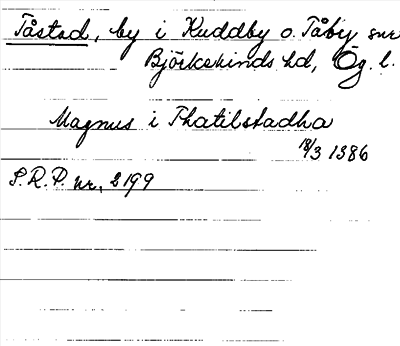 Tåstad, by i Kuddby o. Tåby snr
Björkekinds hd, Ög. l.
Magnus i Thatilstadha
18/3 1386
S.R.P. nr, 2199